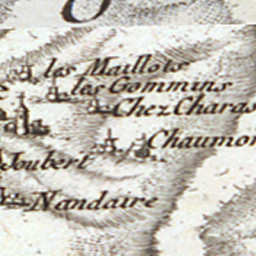 les Maillots
les Gommins
Chez Charas
Chaumon
Joubert
Nandaire